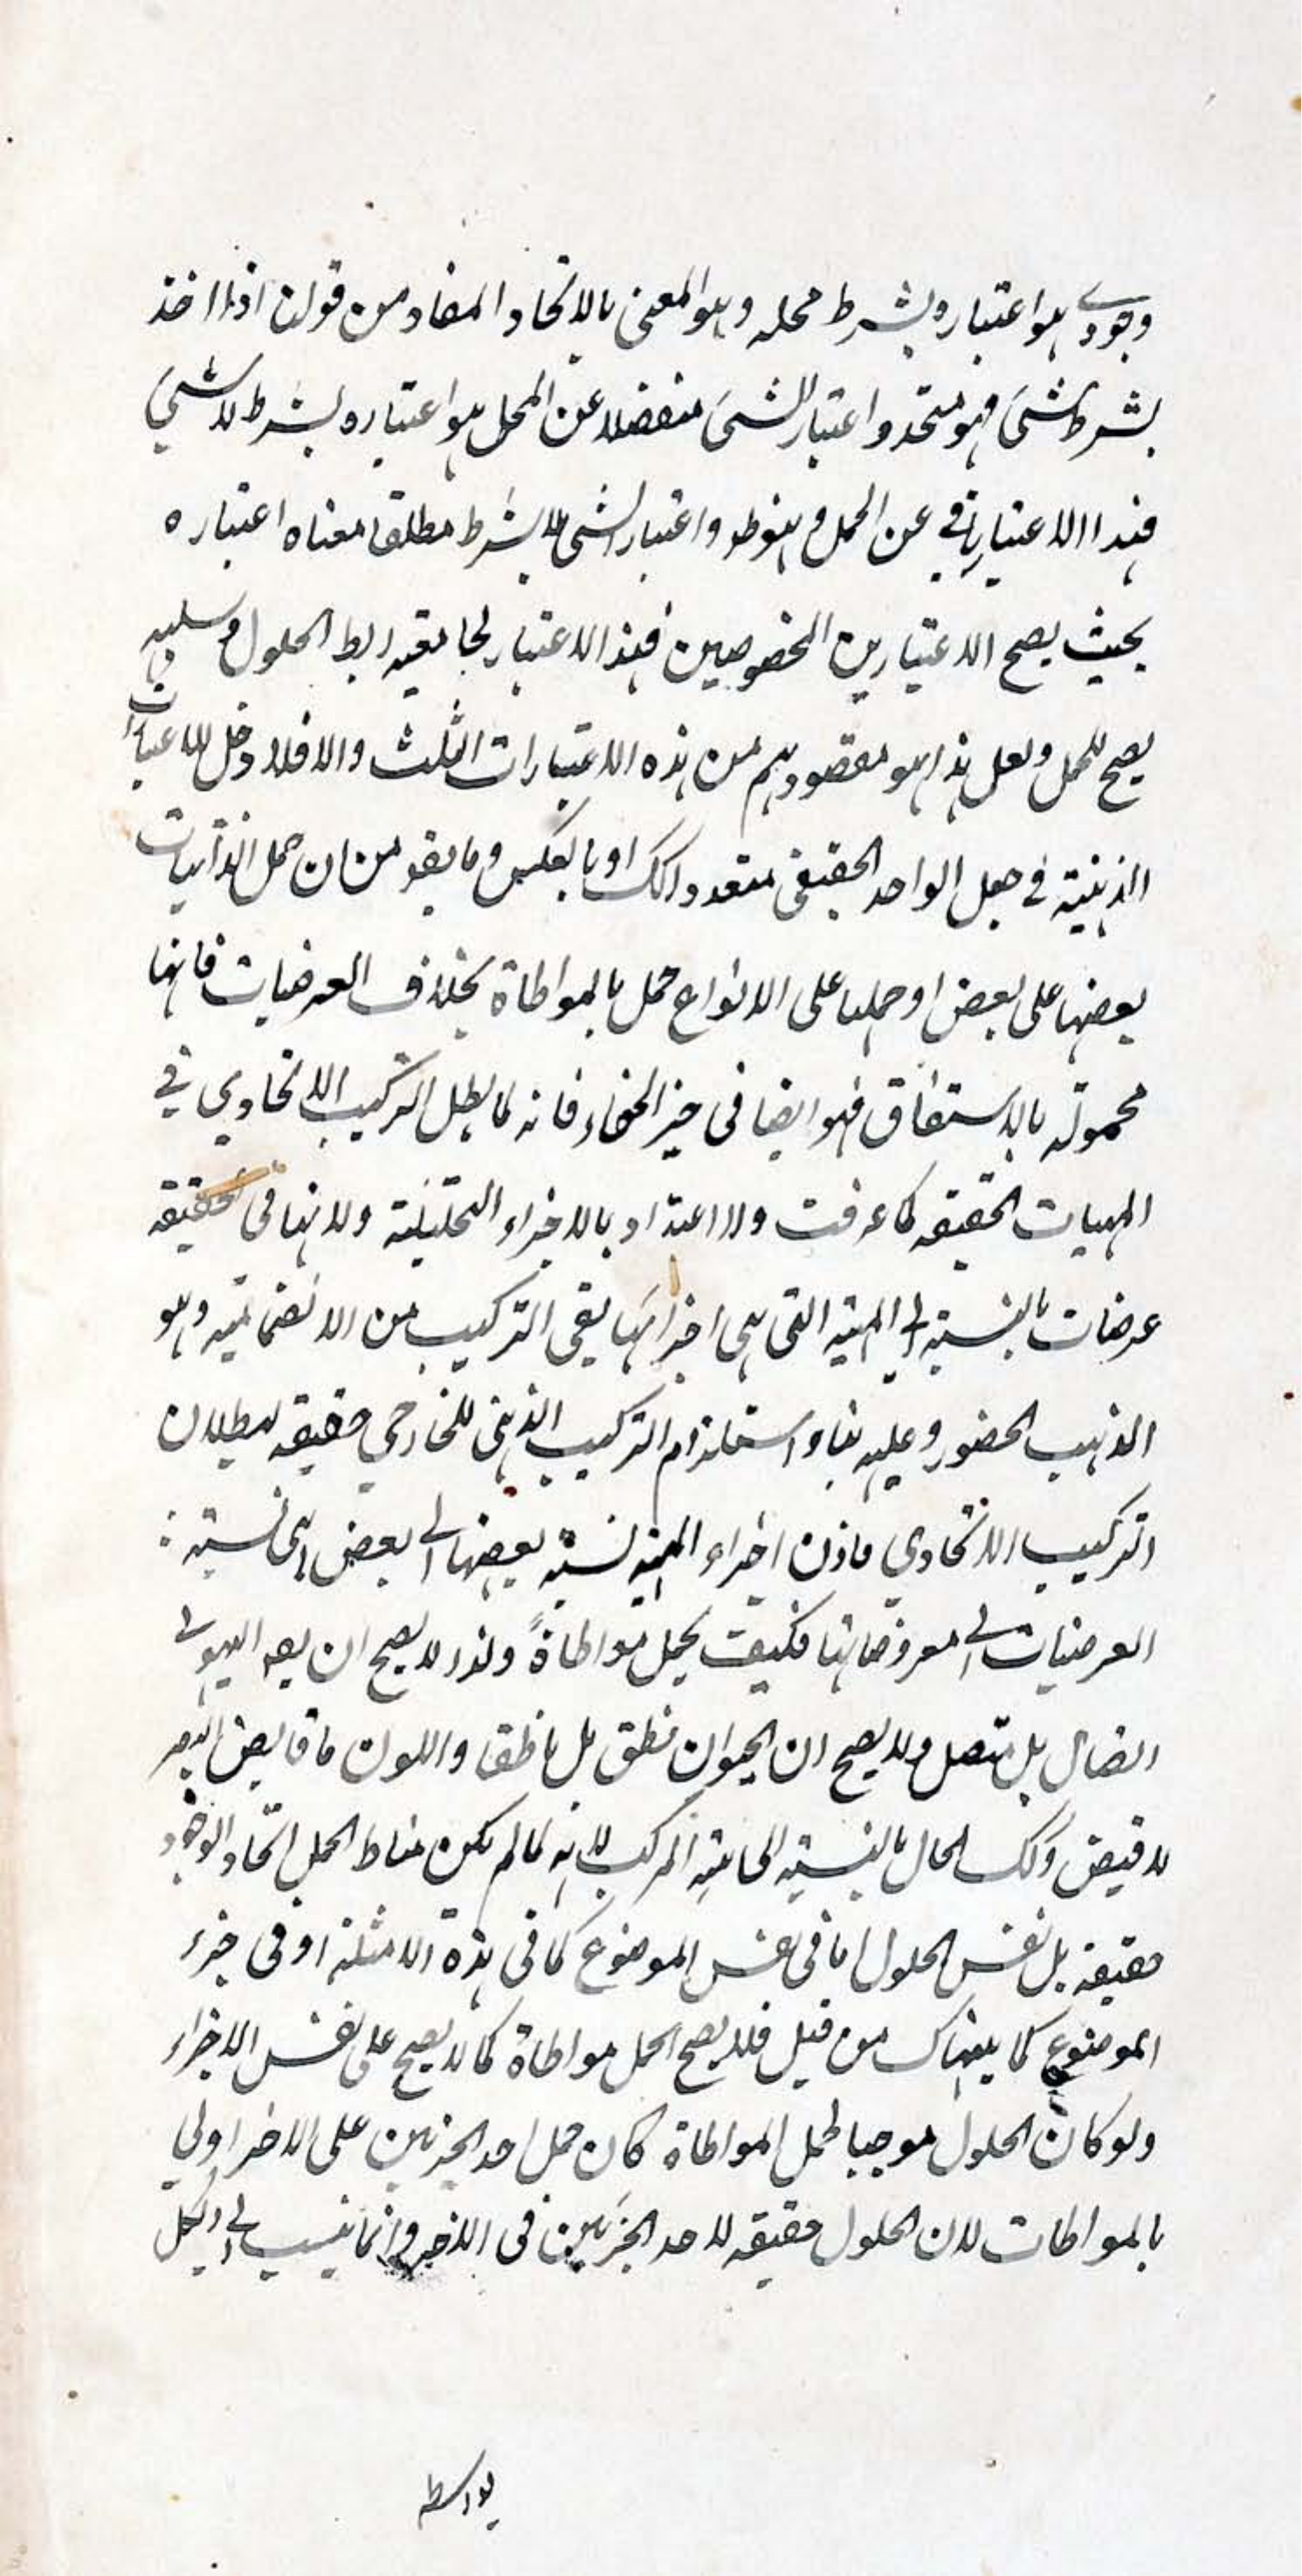 وجودي هو اعتباره بشرط محله وهو المعنى بالاتحاد المفاد من قولن اذا اخذ
بشرط شئ فهو متحد واعتبار الشئ منفصلا عن المحل هو اعتباره بشرط لا شئ
فهذا الاعتبار يابى عن الحمل واعتبار الشئ لا بشرط مطلقا معناه اعتباره
بحيث يصح الاعتبارين المخصوصين فهذا الاعتبار لجامعيه رابط الحلول وسلبه
يصح للحمل ولعل هذا هو مقصودهم من هذه الاعتبارات الثلث والا فلا دخل للاعتبارات
الذهنية في جعل الواحد الحقيقي متعددا كك او بالعكس وما يقو من ان حمل الذاتيات
بعضها على بعض او حملها على الانواع حمل بالمواطاة بخلاف العرضيات فانها
محمولة بالاشتقاق فهو ايضا في حيز الخفاء فانه لما بطل التركيب الاتحادي في
المهيات الحقيقه كما عرفت ولا اعتداد بالاجزاء التحليلية ولانها في الحقيقه
عرضيات بالنسبة الى المهية التي هي اجزائها بقى التركيب من الانضماميه وهو
المذهب المنصور وعليه بناء استلزام التركيب الذهني للخارجي حقيقه لبطلان
التركيب الاتحادي فاذن اجزاء المهية نسبة بعضها الى بعض هي نسبة :
العرضيات الى معروضاتها فكيف يحمل مواطاة ولذا لا يصح ان يقه الهيولى
اتصال بل متصل ولا يصح ان الحيوان نطق بل ناطق واللون قابض البصر
لا قبض وكك الحال بالنسبة الى المركب لانه لما لم يكن مناط الحمل اتحاد الوجود
حقيقه بل نفس الحلول اما في نفس الموضوع كما في هذه الامثلة او في جزء
الموضوع كما بيناك من قبل فلا يصح الحمل مواطاة كما لا يصح على نفس الاجزاء
ولو كان الحلول موجبا لحمل المواطاة كان حمل احد الجزئين على الاخر اولى
بالمواطات لان الحلول حقيقه لاحد الجزئين في الاخر وانما ينسب الى الكل
بواسطه